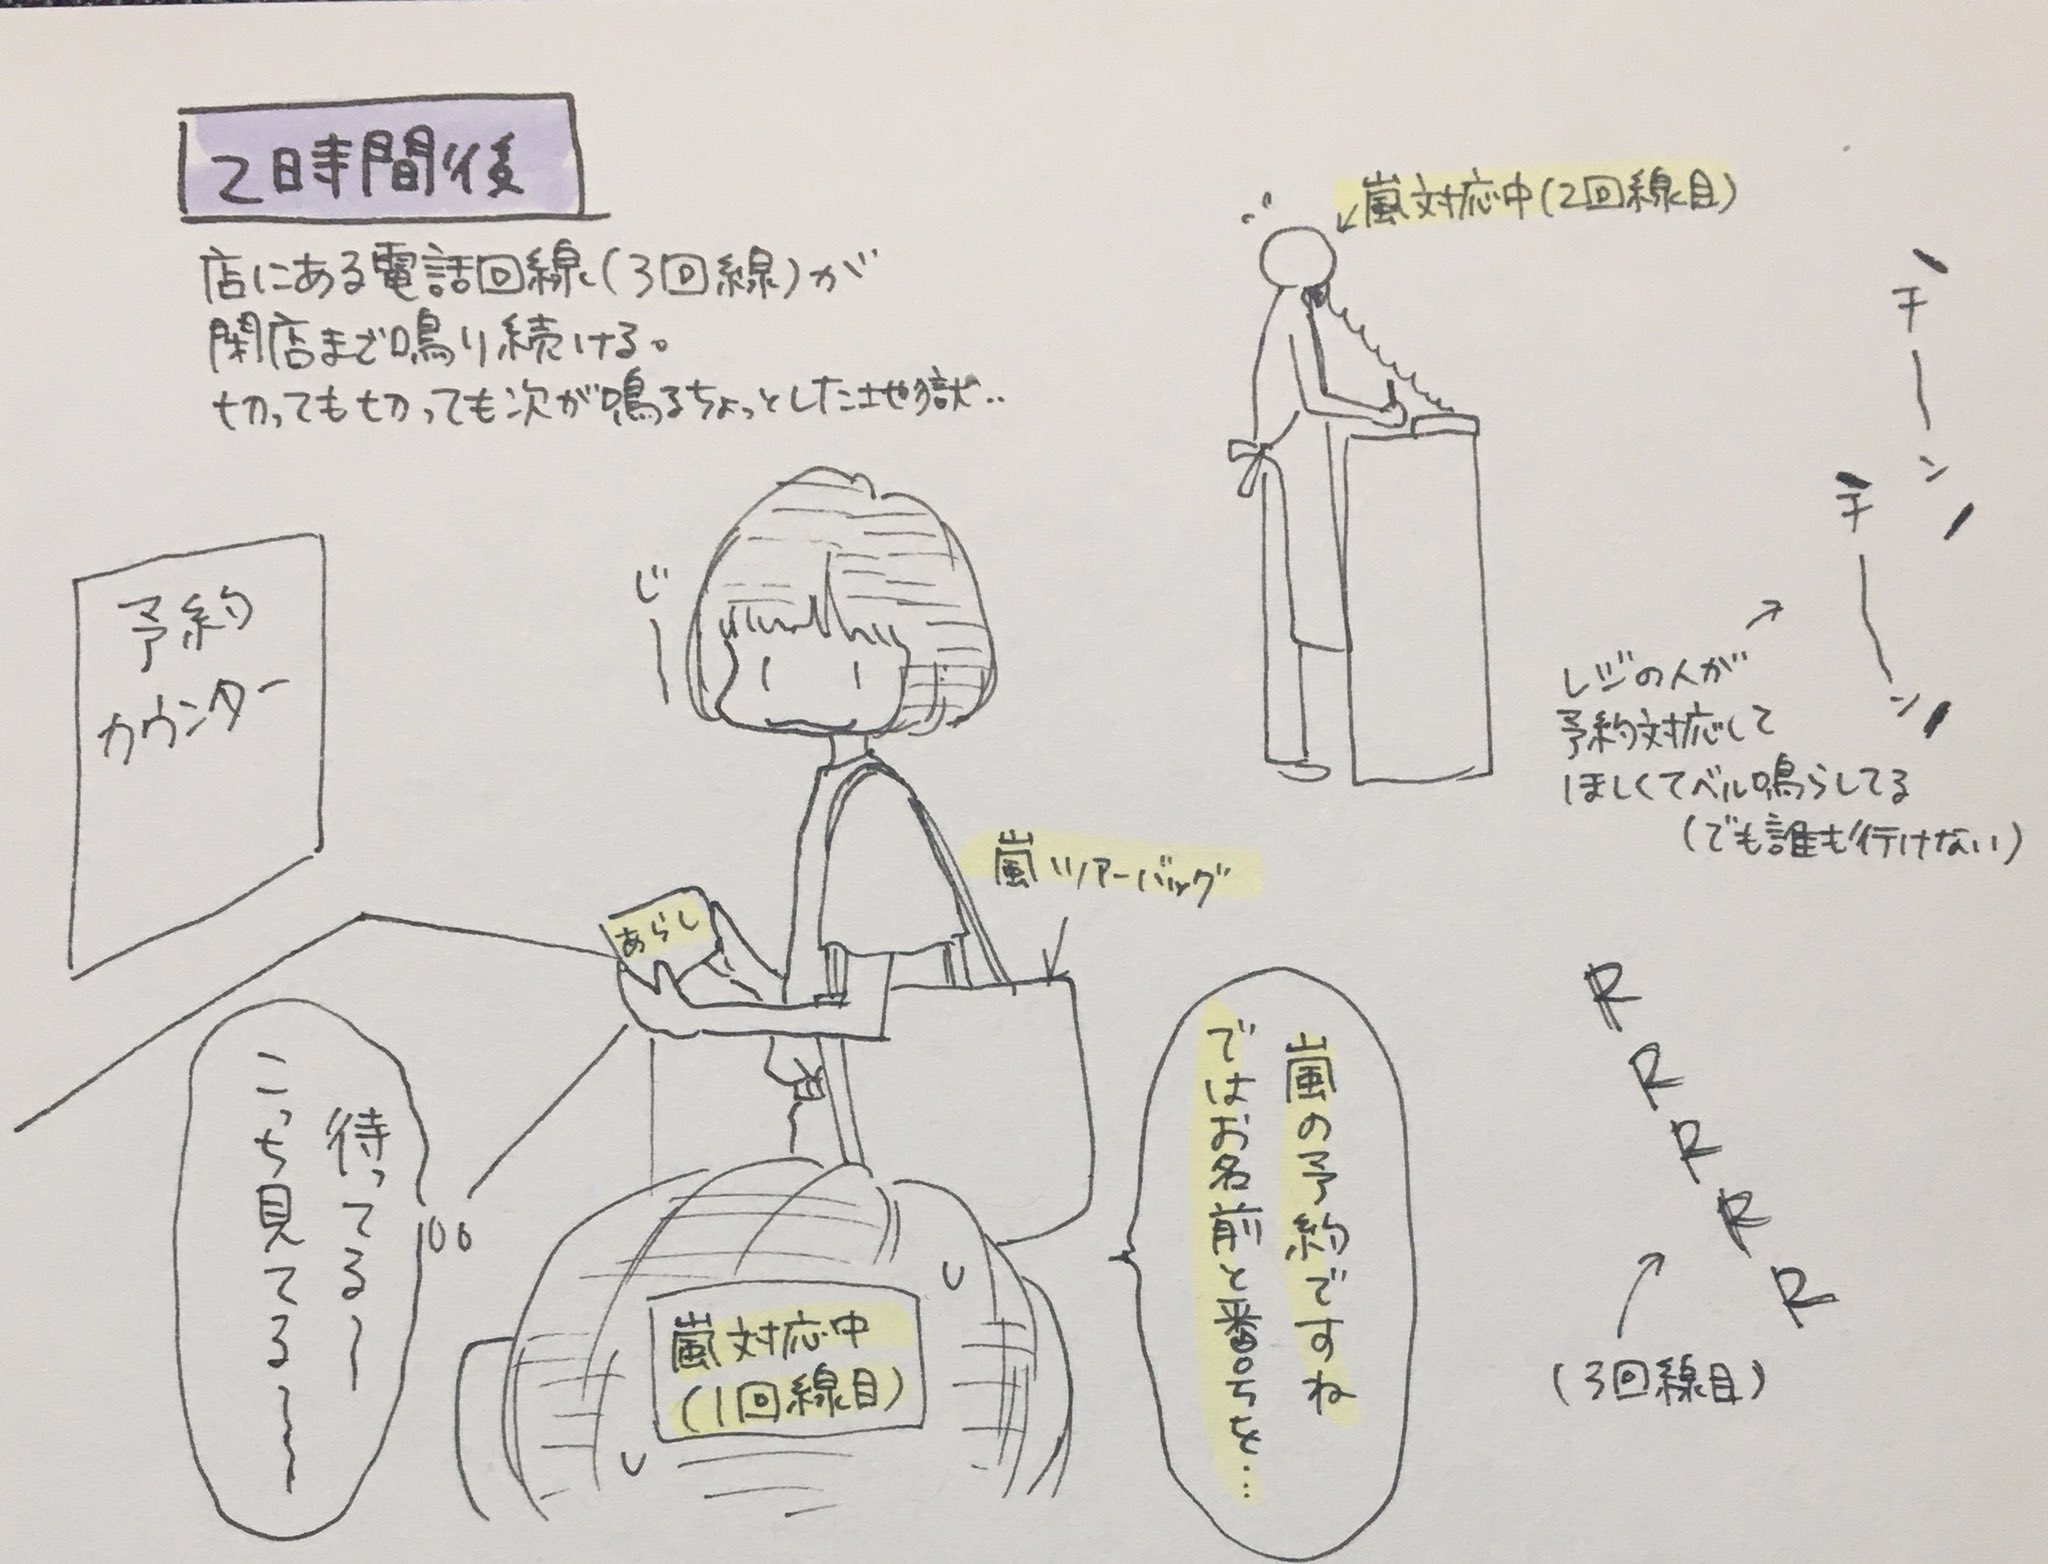 2時間後
店にある電話回線(3回線)が
閉店まで鳴り続ける。
切っても切っても次が鳴るちょっとした地獄..
嵐対応中(2回線目)
チーン
チーン
レジの人が
予約対応して
ほしくてベル鳴らしてる
(でも誰も行けない)
予約
カウンター
じー
嵐ツアーバッグ
あらし
嵐の予約ですね
ではお名前と番号を…
待ってる〜
こっち見てる〜〜
嵐対応中
(1回線目)
RRRRR
(3回線目)